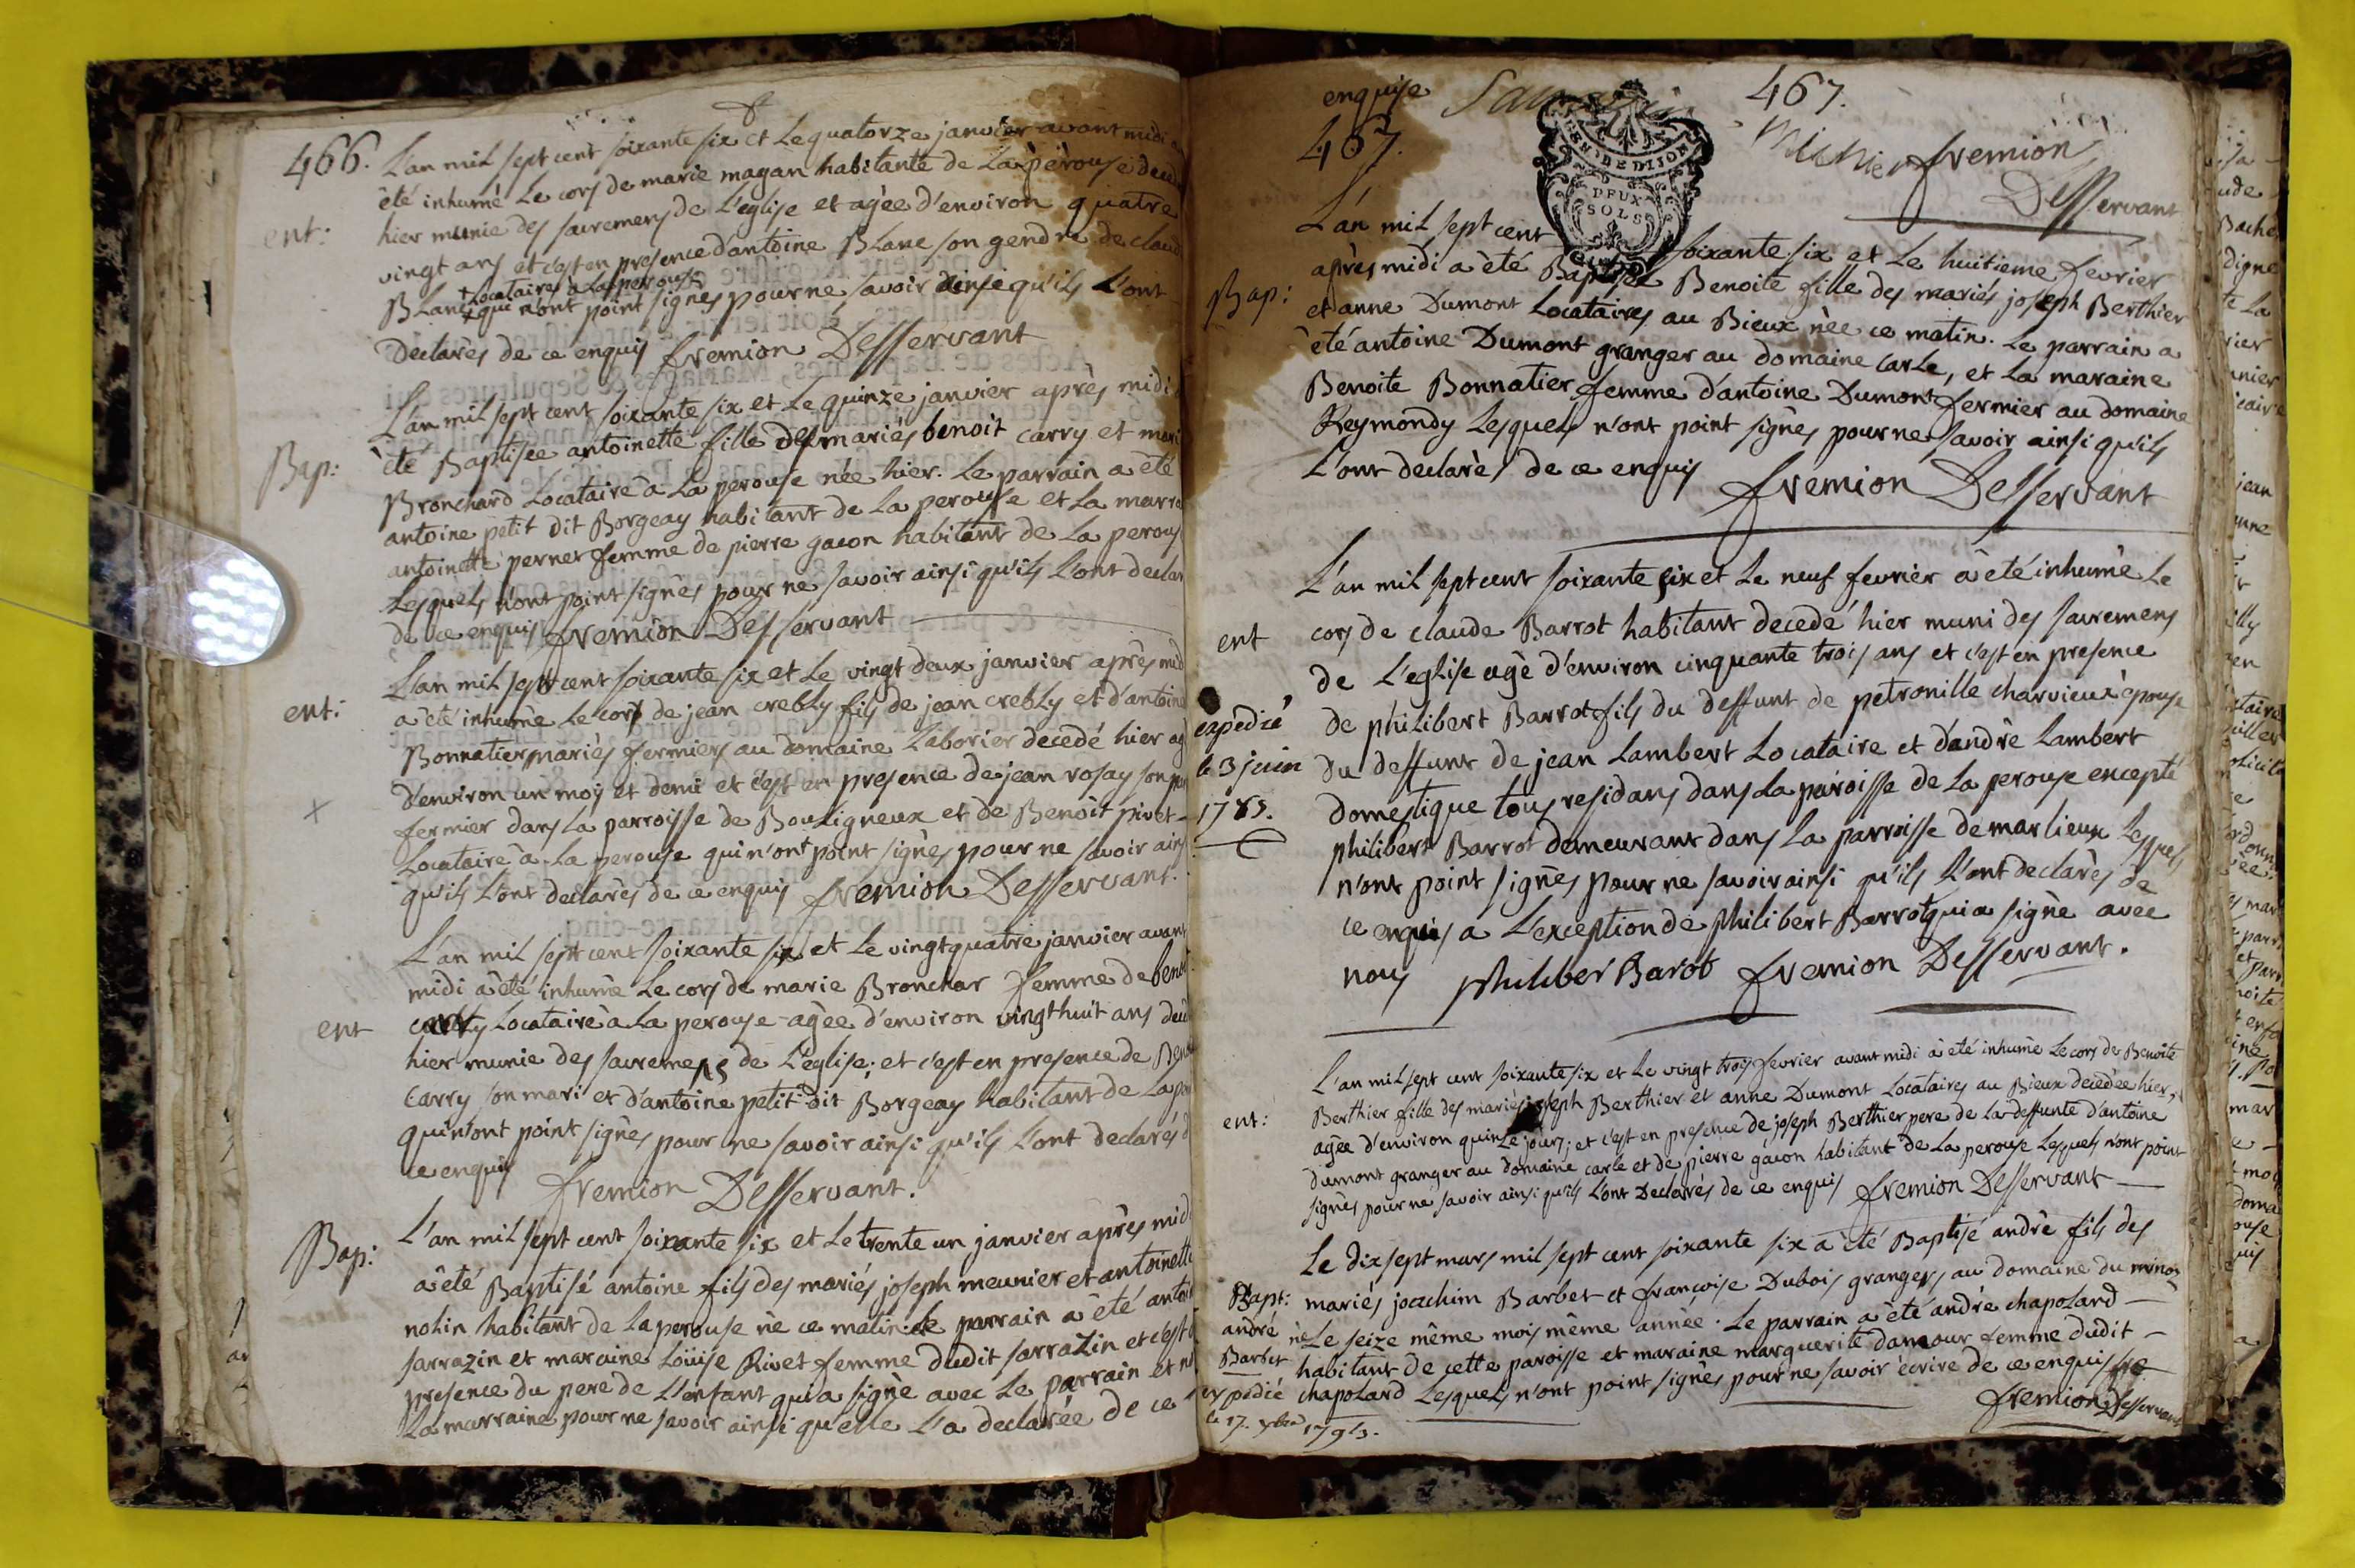 466.
L'an mil sept cent soixante six et le quatorze janvier avant midi
été inhumé le cors de marie magan habitante de La pérouse
ent:
hier munie des sacremens de L'eglise et agée d'environ quatre
vingt ans et c'est en presence d'antoine Blanc son gendre de
+ Locataires a La perouse
Blanc + qui n'ont point signés pour ne savoir ainsi qu'ils L'ont
Declarés de ce enquis fremion Desservant
L'an mil sept cent soixante six et le quinze janvier après midi
Bap:
été Baptisée antoinette fille des mariés benoit carry et
Bronchard Locataire a La perouse née hier. Le parrain a été
antoine petit dit Borgeay habitant de La perouse et La
antoinette perner femme de pierre gacon habitant de La
Lesquels n'ont point signés pour ne savoir ainsi qu'ils L'ont
de ce enquis fremion Desservant
L'an mil sept cent soixante six et Le vingt deux janvier après
ent:
a été inhumé Le cors de jean crebly fils de jean crebly et
Bonnatier mariés fermiers au domaine Laborier decedé hier
d'environ un mois et demi et c'est en presence de jean rosay son
+
fermier dans La parroisse de Bouligneux et de Benoit pivet
Locataire à La perouse qui n'ont point signés pour ne savoir
qu'ils L'ont declarés de ce enquis fremion Desservant.
L'an mil sept cent soixante six et Le vingt quatre janvier avant
midi a été inhumée Le cors de marie Bronchar femme de
ent
carry Locataire à La perouse agée d'environ vingt huit ans
hier munie des sacremens de L'eglise; et c'est en presence de
Carry son mari et d'antoine petit dit Borgeay habitant de
qui n'ont point signés pour ne savoir ainsi qu'ils L'ont declarés
ce enquis fremion Desservant.
L'an mil sept cent soixante six et Le trente un janvier après
Bap:
a été Baptisé antoine fils des mariés joseph meunier et
nolin habitant de La perouse né ce matin. Le parrain a été
sarrazin et maraine Loüise Rivet femme dudit sarrazin et c'est
presence du pere de L'enfant qui a signé avec Le parrain et
La marraine pour ne savoir ainsi qu'elle L'a declarée de ce
enquise
467.
467.
GEN. DE DIJON
DEUX
SOLS
fremion
Desservant
L'an mil sept cent soixante six et Le huitieme fevrier
après midi a été Baptisée Benoite fille des mariés joseph Berthier
Bap:
et anne Dumont Locataires au Bieux née ce matin. Le parrain a
été antoine Dumont granger au domaine Carle, et La maraine
Benoite Bonnatier femme d'antoine Dumont fermier au domaine
Reymondy Lesquels n'ont point signés pour ne savoir ainsi qu'ils
L'ont declarés de ce enquis
fremion Desservant
L'an mil sept cent soixante six et Le neuf fevrier a été inhumé Le
ent
cors de claude Barrot habitant decedé hier muni des sacremens
de L'eglise agé d'environ cinquante trois ans et c'est en presence
de philibert Barrot fils du deffunt de petronille charvieux epouse
expedié
le 3 juin
1783.
du deffunt de jean Lambert Locataire et d'andré Lambert
domestique tous residans dans La paroisse de La perouse excepté
philibert Barrot demeurant dans La parroisse de marlieux Lesquels
n'ont point signés pour ne savoir ainsi qu'ils L'ont declarés de
ce enquis a L'exception de philibert Barrot qui a signé avec
nous philiber Barot fremion Desservant.
L'an mil sept cent soixante six et Le vingt trois fevrier avant midi a été inhumé Le cors de Benoite
ent:
Berthier fille des mariés joseph Berthier et anne Dumont Locataires au Bieux decedée hier,
agée d'environ quinze jours; et c'est en presence de joseph Berthier pere de la deffunte d'antoine
Dumont granger au domaine carle et de pierre gacon habitant de La perouse Lesquels n'ont point
signés pour ne savoir ainsi qu'ils L'ont Declarés de ce enquis fremion Desservant
Le dix sept mars mil sept cent soixante six a été Baptisé andré fils des
Bapt:
andré
Barbet
expedié
mariés joachim Barbet et francoise Dubois grangers au domaine du
né Le seize même mois même année. Le parrain a été andré chapoLard
habitant de cette paroisse et maraine marguerite damour femme dudit
chapoLard Lesquels n'ont point signés pour ne savoir écrire de ce enquis
fremion Desservant